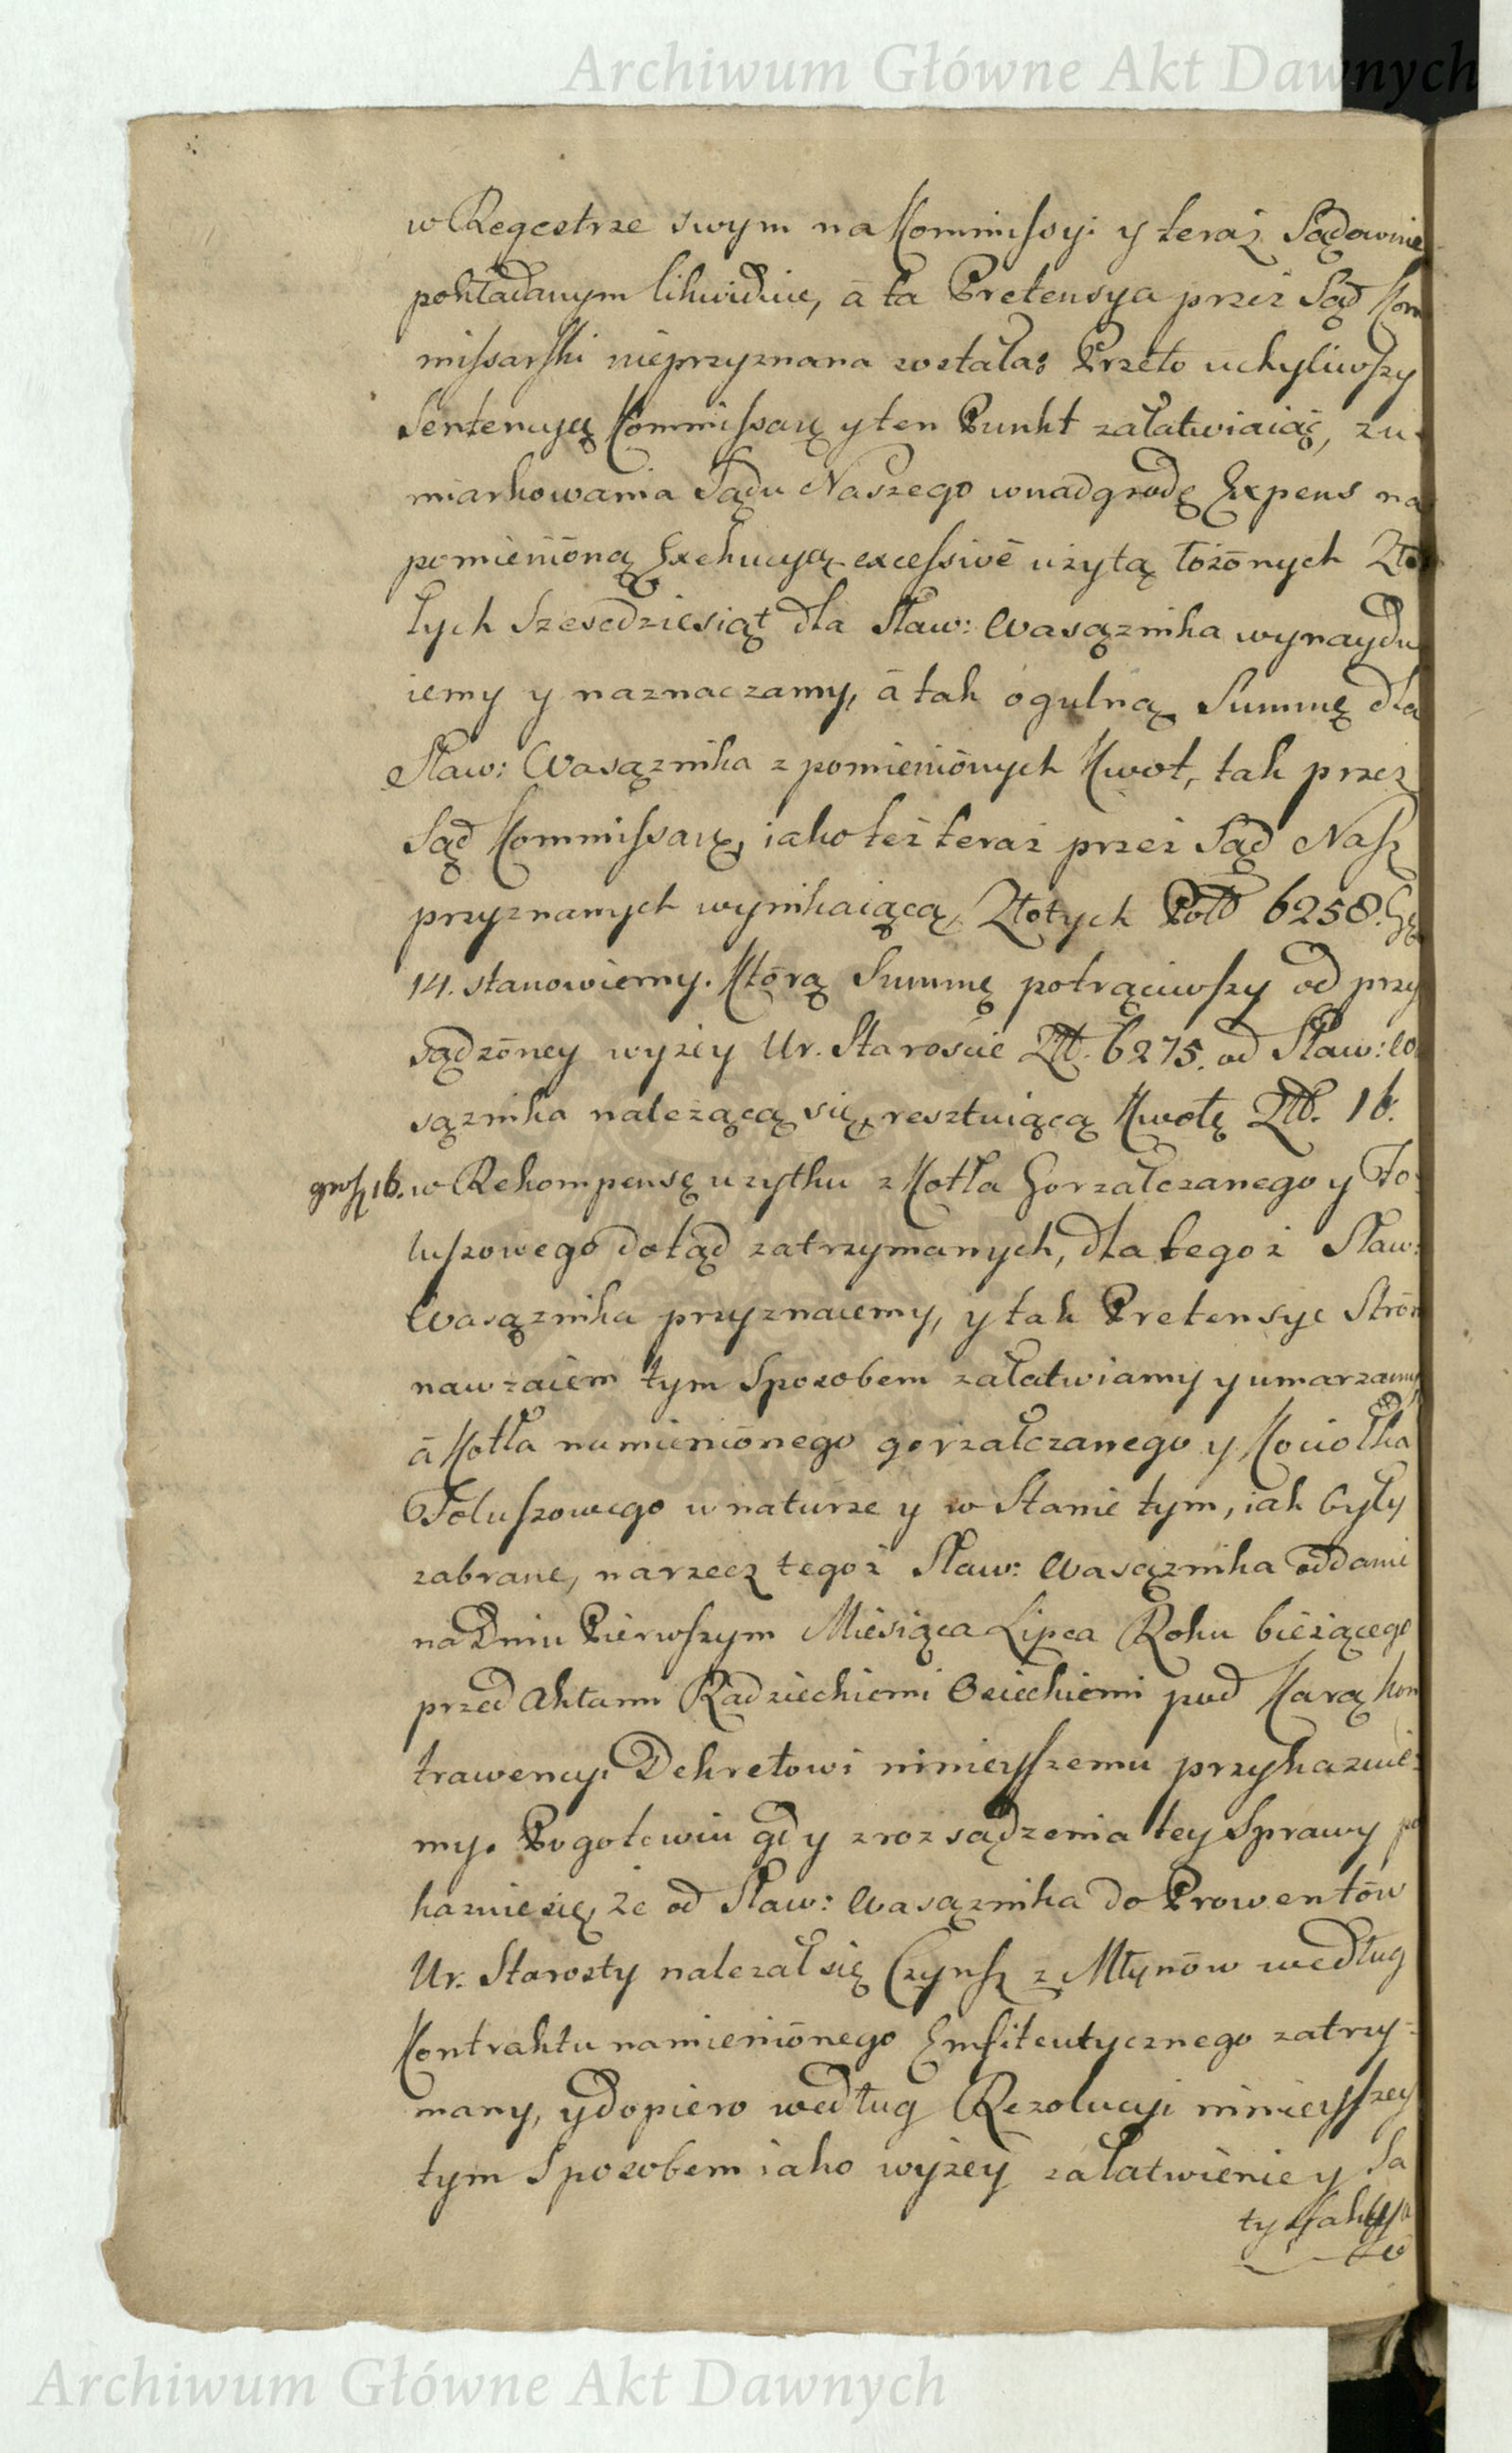 Archiwum Główne Akt Dawnych
w Regestrze swym na Kommissyi y teraz Sądownie
pokładanym likwiduie, á ta Pretensya przez Sąd Kom
missarski nieprzyznana została: Przeto uchyliwszy
Sentencyą Kommissarą y ten Punkt załatwiaiąc, zu-
miarkowania Sądu Naszego wnadgrodę Expens na
pomienióną Exekucyą excessivè użytą łożónych Zło
tych Szescdziesiąt dla Sław: Wasąznika wynaydu
iemy y naznaczamy, á tak ogulną Summę dla
Sław: Wasąznika z pomieniónych Kwot, tak przez
Sąd Kommissarą, iako też teraz przez Sąd Nasz
przyznanych wynikaiącą, Złotych Pol 6258. Gr
14. stanowiemy. Którą Summę potrąciwszy od przy
sądzóney wyżey Ur. Staroście Złt. 6275. od Sław: Wa
sąznika należącą się, resztuiącą Kwotę Złt. 16.
grosz 16. w Rekompensę użytku z Kotła Gorzałczanego y Fo-
luszowego dotąd zatrzymanych, dla tegoż Sław:
Wasąznika przyznaiemy, y tak Pretensye Strón
nawzaiem tym Sposobem załatwiamy y umarzamy
á Kotła namieniónego gorzałczanego y Kociołka
Foluszowego w naturze y w Stanie tym, iak były
zabrane, narzecz tegoż Sław: Wasąznika oddanie
na Dniu Pierwszym Miesiąca Lipca Roku bieżącego
przed Aktami Radzieckiemi Osieckiemi pod Karą kon
trawencyi Dekretowi ninieyszemu przykazuie-
my. Pogotowiu gdy z rozsądzenia tey Sprawy po
kazuie się, że od Sław: Wasąznika do Prowentów
Ur. Starosty należał się Czynsz z Młynów według
Kontraktu namieniónego Emfiteutycznego zatrzy-
many, y dopiero według Rezolucyi ninieyszey
tym Sposobem iako wyżey załatwienie y Sa
tysfakcya
Archiwum Główne Akt Dawnych